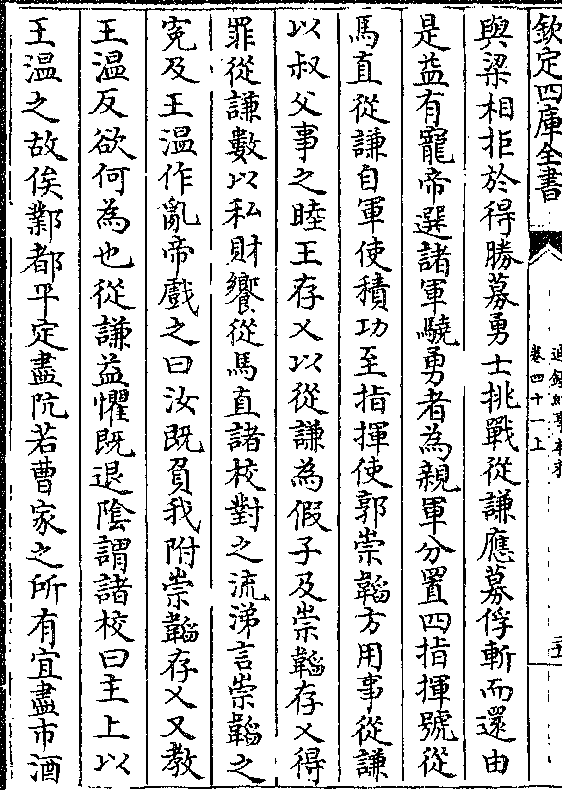 欽定四庫全書
卷四十一上
與梁相拒於得勝募勇士挑戰從謙應募俘斬而還由
是益有寵帝選諸軍驍勇者為親軍分置四指揮號從
馬直從謙自軍使積功至指揮使郭崇韜方用事從謙
以叔父事之睦王存乂以從謙為假子及崇韜存乂得
罪從謙數以私財饗從馬直諸校對之流涕言崇韜之
寃及王温作亂帝戲之曰汝既負我附崇韜存乂又教
王温反欲何為也從謙益懼既退陰謂諸校曰主上以
王温之故俟鄴都平定盡阬若曹家之所有宜盡市酒